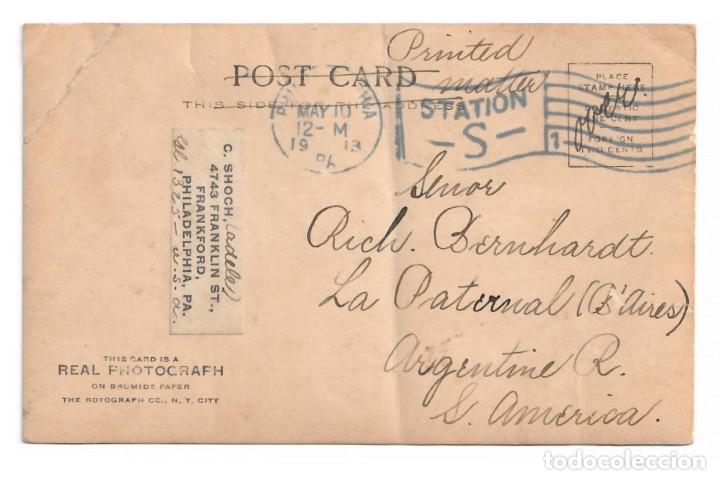 Printed
matter
POST CARD
THIS SIDE FOR THE ADDRESS
MAY 10
12-M
1913
Pa.
STATION
-S-
1
PLACE
STAMP HERE
FOREIGN
TWO CENTS
C. SHOCH, (adeles)
4743 FRANKLIN ST.,
FRANKFORD,
PHILADELPHIA, PA.
1325 - U.S.A.
Senor
Rich. Bernhardt.
La Paternal (B'Aires)
Argentine R.
S. America.
THIS CARD IS A
REAL PHOTOGRAPH
ON BROMIDE PAPER
THE ROTOGRAPH CO., N. Y. CITY
todocoleccion.net